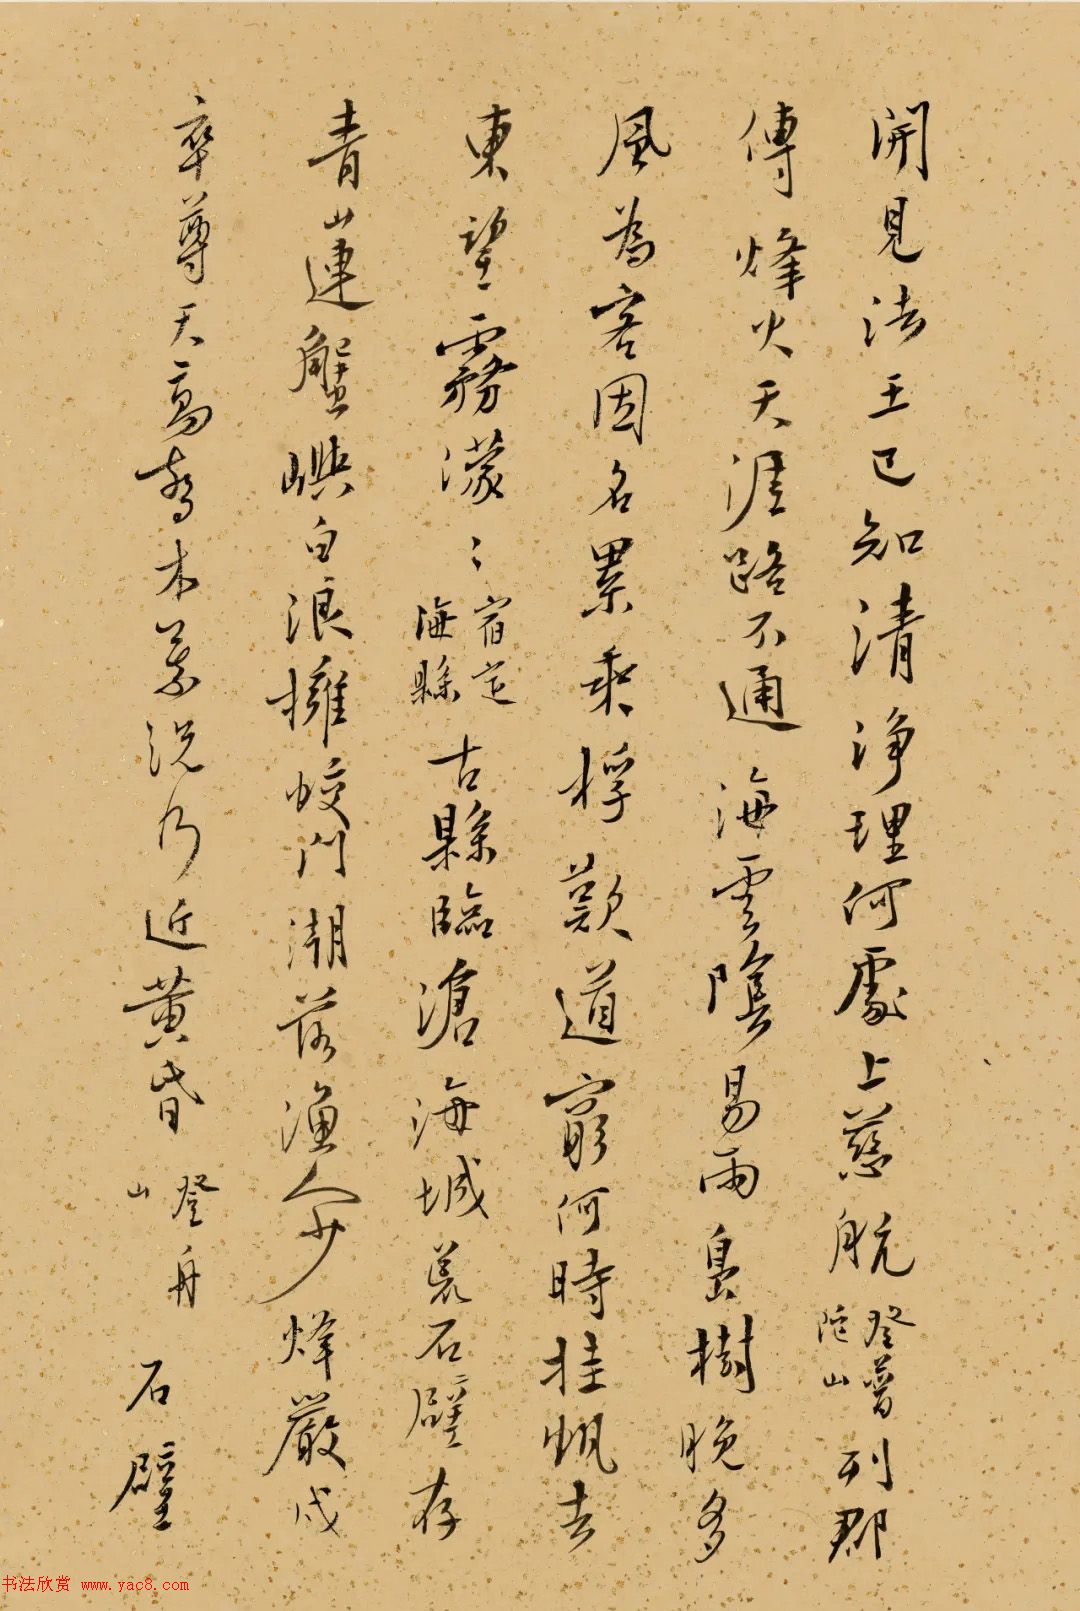 開見法王已知清净理何處上慈航 登普陀山 列郡
傳烽火天涯路不通海雲陰易雨島樹晚多
風為客因名累乘桴歎道窮何時挂帆去
東望霧濛〻 宿定海縣 古縣臨滄海城荒石壁存
青山連蟹嶼白浪擁蛟門潮落漁人少烽嚴戍
卒尊天高喬木落況乃近黃昏 登舟山 石壁
书法欣赏 www.yac8.com